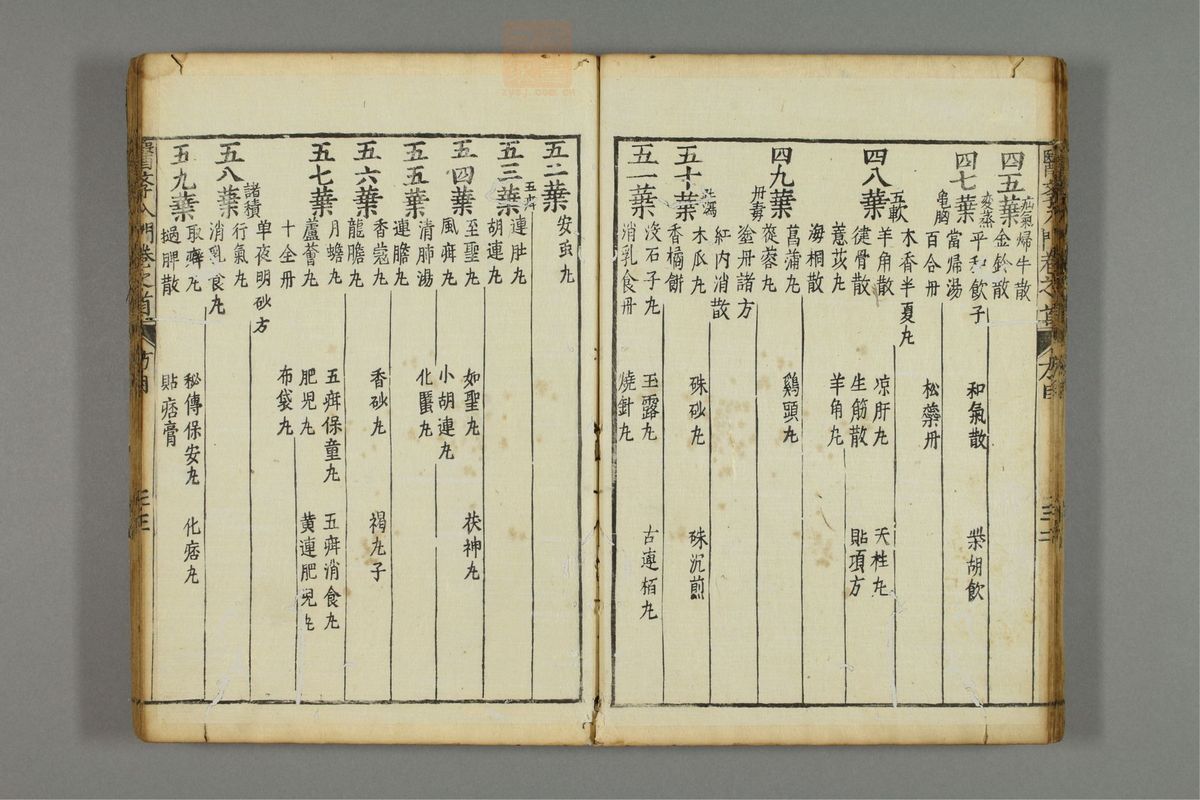 四五葉
疝氣 歸牛散
金鈴散
四七葉
變蒸 平和飲子 和氣散 柴胡飲
當歸湯
龟胸 百合丹 松藥丹
木香半夏丸
四八葉
五軟 羊角散 凉肝丸 天柱丸
健骨散 生筋散 貼項方
薏苡丸 羊角丸
海桐散
四九葉
菖蒲丸 鷄頭丸
蓯蓉丸
丹毒 塗丹諸方
紅内消散
五十葉
木瓜丸 硃砂丸 硃沉煎
香橘餅
五一葉
沒石子丸 玉露丸 古連栢丸
消乳食丹 燒針丸
五二葉
安虫丸
五疳 連肚丸
五三葉
胡連丸
五四葉
至聖丸 如聖丸 茯神丸
風疳丸 小胡連丸
五五葉
清肺湯 化䘌丸
連膽丸
五六葉
香蔻丸 香砂丸 褐丸子
龍膽丸
五七葉
月蟾丸 五疳保童丸 五疳消食丸
蘆薈丸 肥児丸 黄連肥児丸
十全丹 布袋丸
单夜明砂方
諸積 行氣丸
五八葉
消乳食丸
五九葉
取癖丸 秘傳保安丸 化痞丸
搥脾散 貼痞膏
醫學入門卷之首
方目